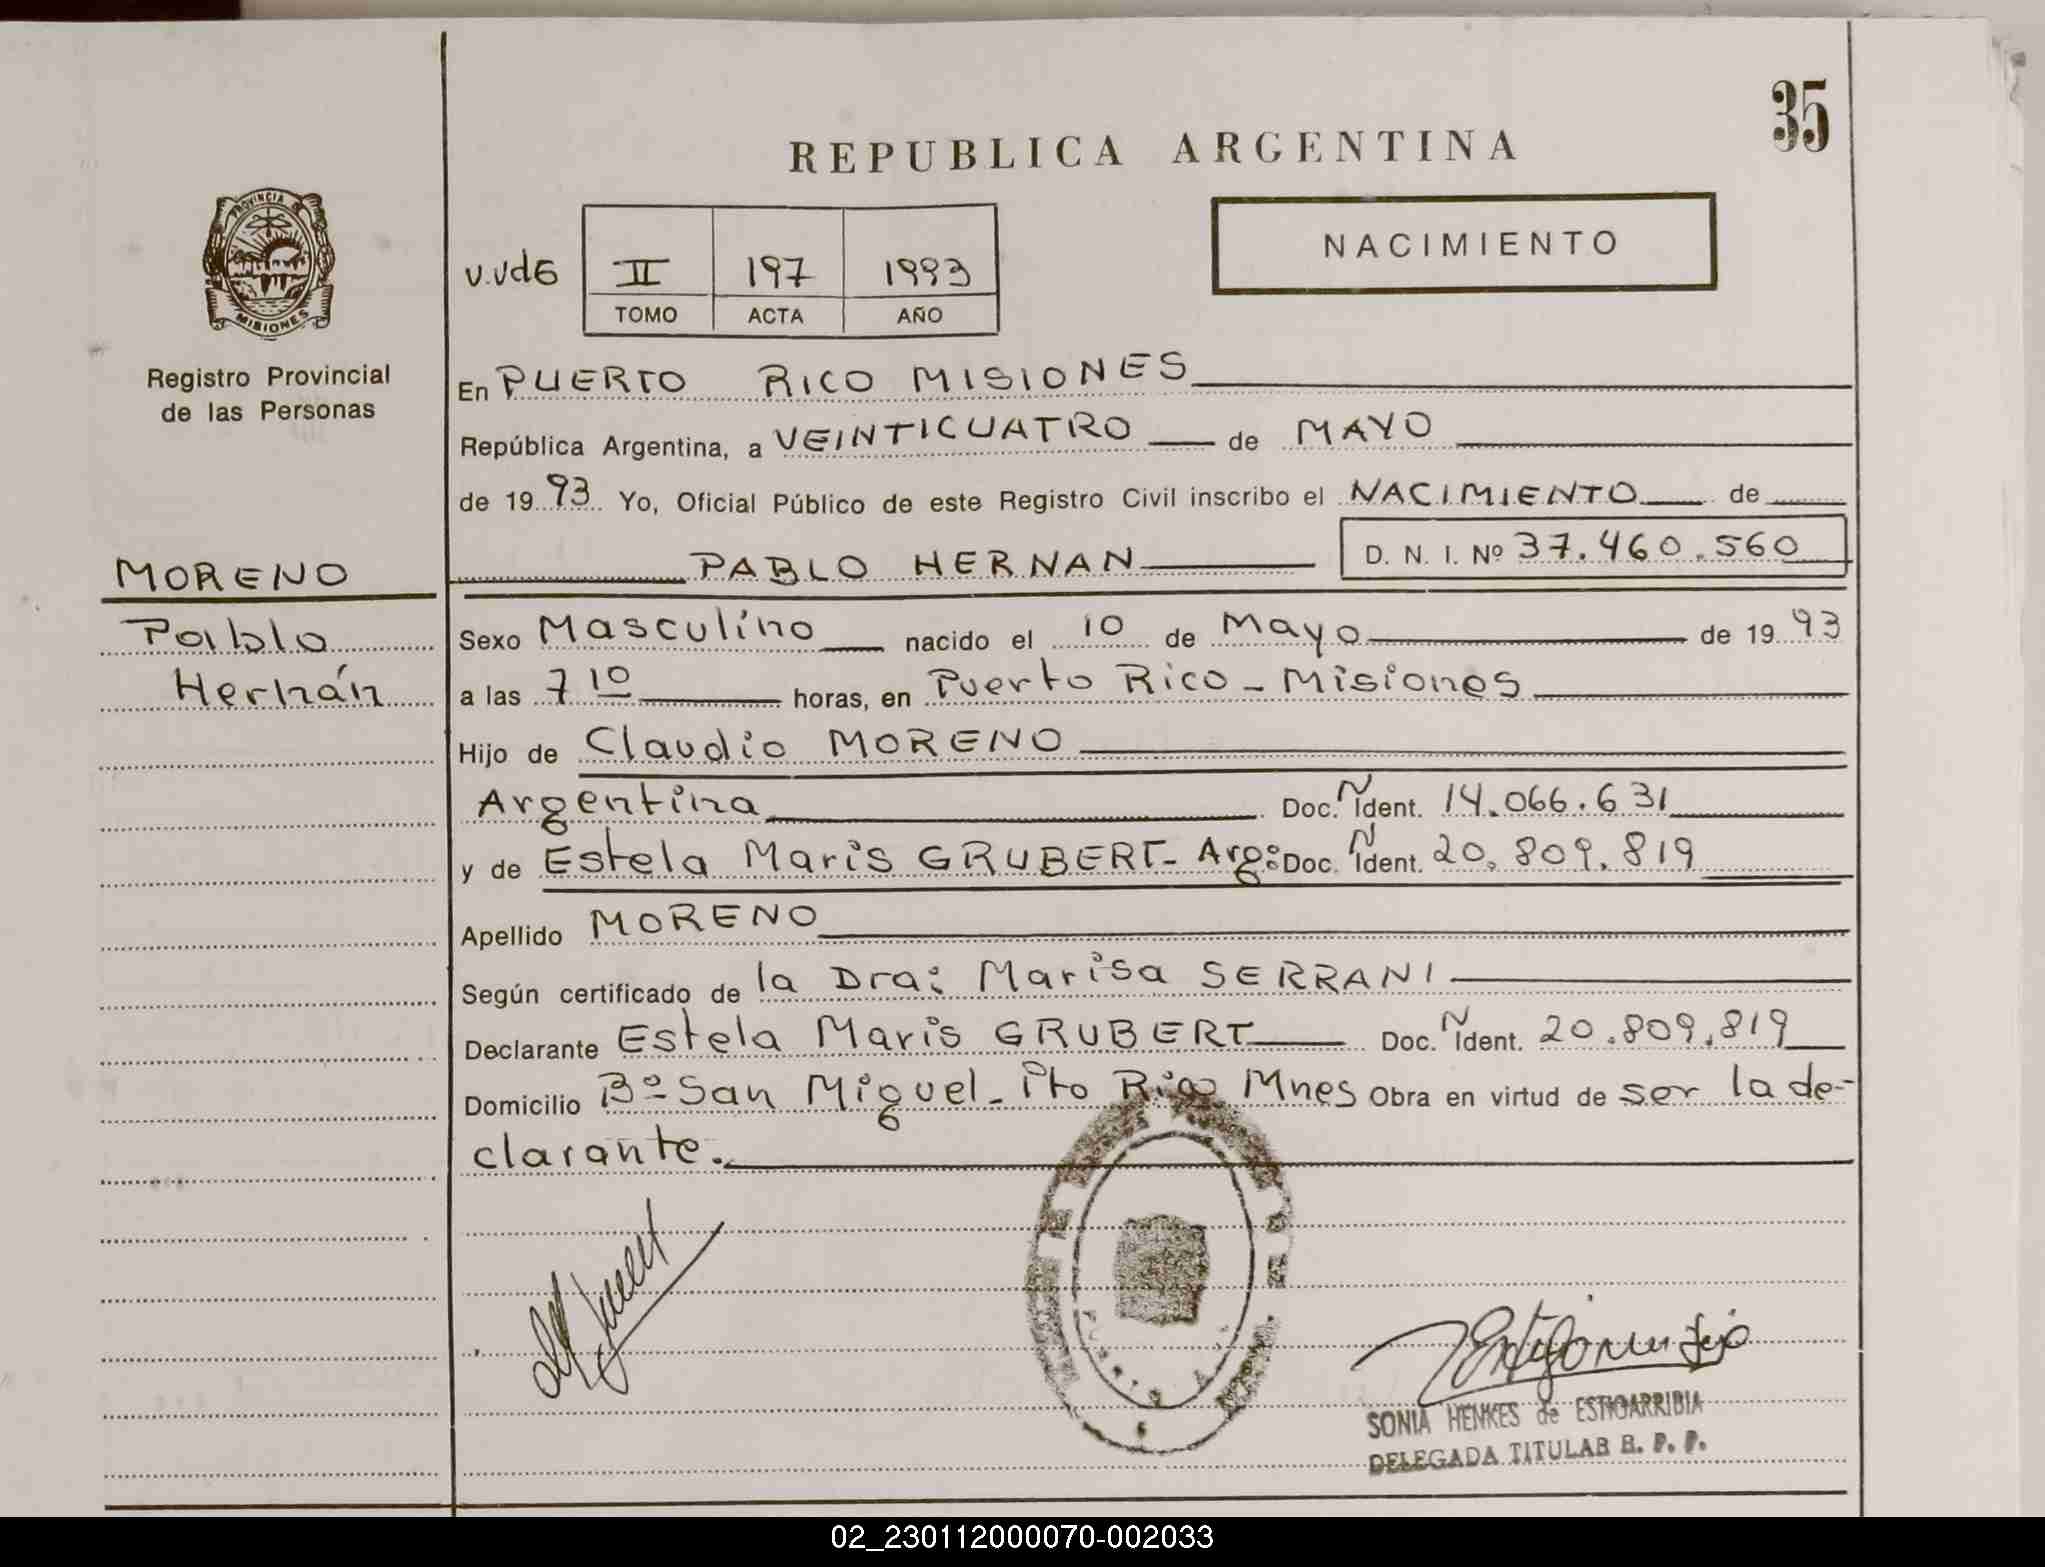 35
REPUBLICA ARGENTINA
PROVINCIA DE
MISIONES
Registro Provincial
de las Personas
NACIMIENTO
v.vd6 II 197 1993
TOMO ACTA AÑO
En PUERTO RICO MISIONES
República Argentina, a VEINTICUATRO de MAYO
de 1993 Yo, Oficial Público de este Registro Civil inscribo el NACIMIENTO de
PABLO HERNAN D. N. I. Nº 37.460.560
MORENO
Pablo
Hernán
Sexo Masculino nacido el 10 de Mayo de 1993
a las 7 10 horas, en Puerto Rico - Misiones
Hijo de Claudio MORENO
Argentina Doc. N Ident. 14.066.631
y de Estela Maris GRUBERT - Arg: Doc. N Ident. 20.809.819
Apellido MORENO
Según certificado de la Dra: Marisa SERRANI
Declarante Estela Maris GRUBERT Doc. N Ident. 20.809.819
Domicilio Bº San Miguel - Pto Rico Mnes Obra en virtud de ser la de-
clarante.
SONIA HENKES de ESTIGARRIBIA
DELEGADA TITULAR R. P. P.
02_230112000070-002033